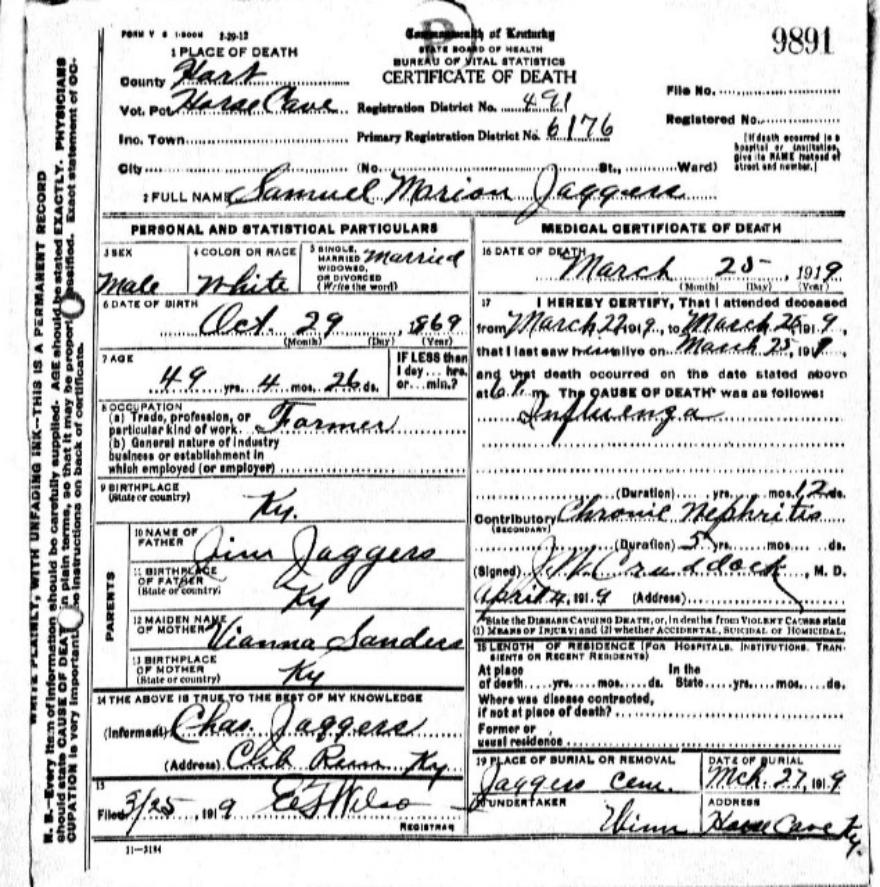 FORM V S 1-500M 2-29-12
Commonwealth of Kentucky
STATE BOARD OF HEALTH
BUREAU OF VITAL STATISTICS
CERTIFICATE OF DEATH
9891
1 PLACE OF DEATH
County Hart
Vot. Pct Horse Cave Registration District No. 491
Inc. Town Primary Registration District No. 6176
City (No. St., Ward)
File No.
Registered No.
[If death occurred in a
hospital or institution,
give its NAME instead of
street and number.]
2 FULL NAME Samuel Marion Jaggers
PERSONAL AND STATISTICAL PARTICULARS
3 SEX
Male
4 COLOR OR RACE
White
5 SINGLE,
MARRIED
WIDOWED,
OR DIVORCED
(Write the word)
Married
6 DATE OF BIRTH
Oct. 29, 1869
(Month) (Day) (Year)
7 AGE
49 yrs. 4 mos. 26 ds.
IF LESS than
1 day ... hrs.
or ... min.?
8 OCCUPATION
(a) Trade, profession, or
particular kind of work Farmer
(b) General nature of industry
business or establishment in
which employed (or employer)
9 BIRTHPLACE
(State or country)
Ky.
PARENTS
10 NAME OF
FATHER Jim Jaggers
11 BIRTHPLACE
OF FATHER
(State or country)
Ky
12 MAIDEN NAME
OF MOTHER Vianna Sanders
13 BIRTHPLACE
OF MOTHER
(State or country)
Ky
14 THE ABOVE IS TRUE TO THE BEST OF MY KNOWLEDGE
(Informant) Chas. Jaggers
(Address) Ky
15
Filed 3/25, 1919
REGISTRAR
11-3184
MEDICAL CERTIFICATE OF DEATH
16 DATE OF DEATH
March 25, 1919
(Month) (Day) (Year)
17 I HEREBY CERTIFY, That I attended deceased
from March 22 1919, to March 25 1919,
that I last saw him alive on March 25, 191
and that death occurred on the date stated above
at 6 P. m. The CAUSE OF DEATH* was as follows:
Influenza
(Duration) yrs. mos. 12 ds.
Contributory Chronic Nephritis
(SECONDARY)
(Duration) 5 yrs. mos. ds.
(Signed) Craddock, M. D.
April 4, 1919 (Address)
*State the DISEASE CAUSING DEATH, or, in deaths from VIOLENT CAUSES state
(1) MEANS OF INJURY; and (2) whether ACCIDENTAL, SUICIDAL OR HOMICIDAL.
18 LENGTH OF RESIDENCE (FOR HOSPITALS, INSTITUTIONS, TRAN-
SIENTS OR RECENT RESIDENTS)
At place In the
of death yrs. mos. ds. State yrs. mos. ds.
Where was disease contracted,
if not at place of death?
Former or
usual residence
19 PLACE OF BURIAL OR REMOVAL
Jaggers Cem.
DATE OF BURIAL
Mch. 27, 1919
20 UNDERTAKER
Winn
ADDRESS
Horse Cave Ky.
WRITE PLAINLY, WITH UNFADING INK—THIS IS A PERMANENT RECORD
N. B.—Every item of information should be carefully supplied. AGE should be stated EXACTLY. PHYSICIANS
should state CAUSE OF DEATH in plain terms, so that it may be properly classified. Exact statement of OC-
CUPATION is very important. See instructions on back of certificate.